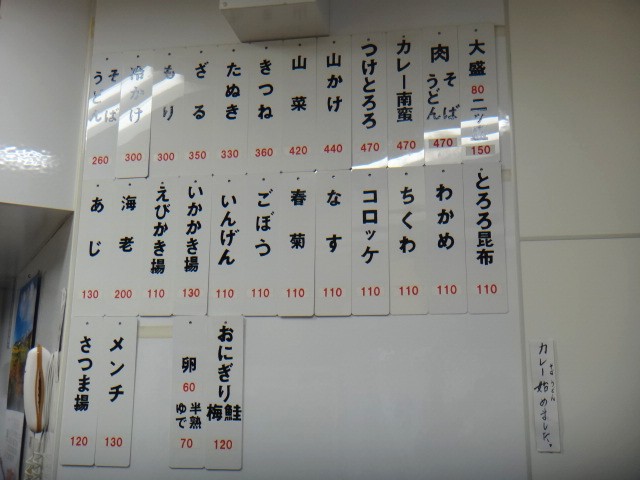 大盛 80 ニッ 150
肉 そば うどん 470
カレー南蛮 470
つけとろろ 470
山かけ 440
山菜 420
きつね 360
たぬき 330
ざる 350
もり 300
冷かけ 300
そば うどん 260
とろろ昆布 110
わかめ 110
ちくわ 110
コロッケ 110
なす 110
春菊 110
ごぼう 110
いんげん 110
いかかき揚 130
えびかき揚 110
海老 200
あじ 130
おにぎり 鮭 梅 120
卵 60 半熟 ゆで 70
メンチ 130
さつま揚 120
カレー 始めました。